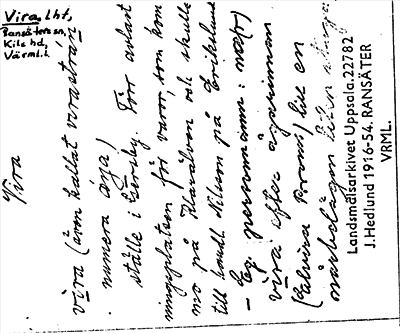 Vira, lht,
Ransäters sn,
Kils hd,
Värml. l.
Vira
vira (även kallat virastrå)
numera äga)
ställe i Gersby. För avlast
ningsplatsen för varor, som kom
mo på Klarälven och skulle
till handl. Nilsson på Eriks
– Eg. personnamn: namn
Vira efter ägarinnan
till en
närbelägen liten stuga
Landsmålsarkivet Uppsala.22782
J.Hedlund 1916-54. RANSÄTER
VRML.